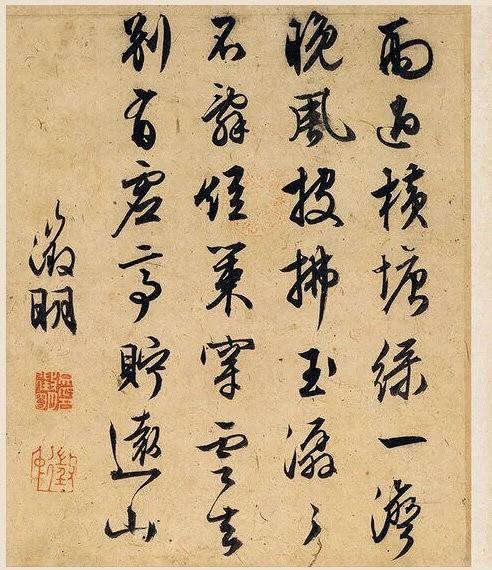 雨過横塘綠一灣
晚風披拂玉潺〻
不辭短策穿雲去
別有虛亭貯遠山
徵明